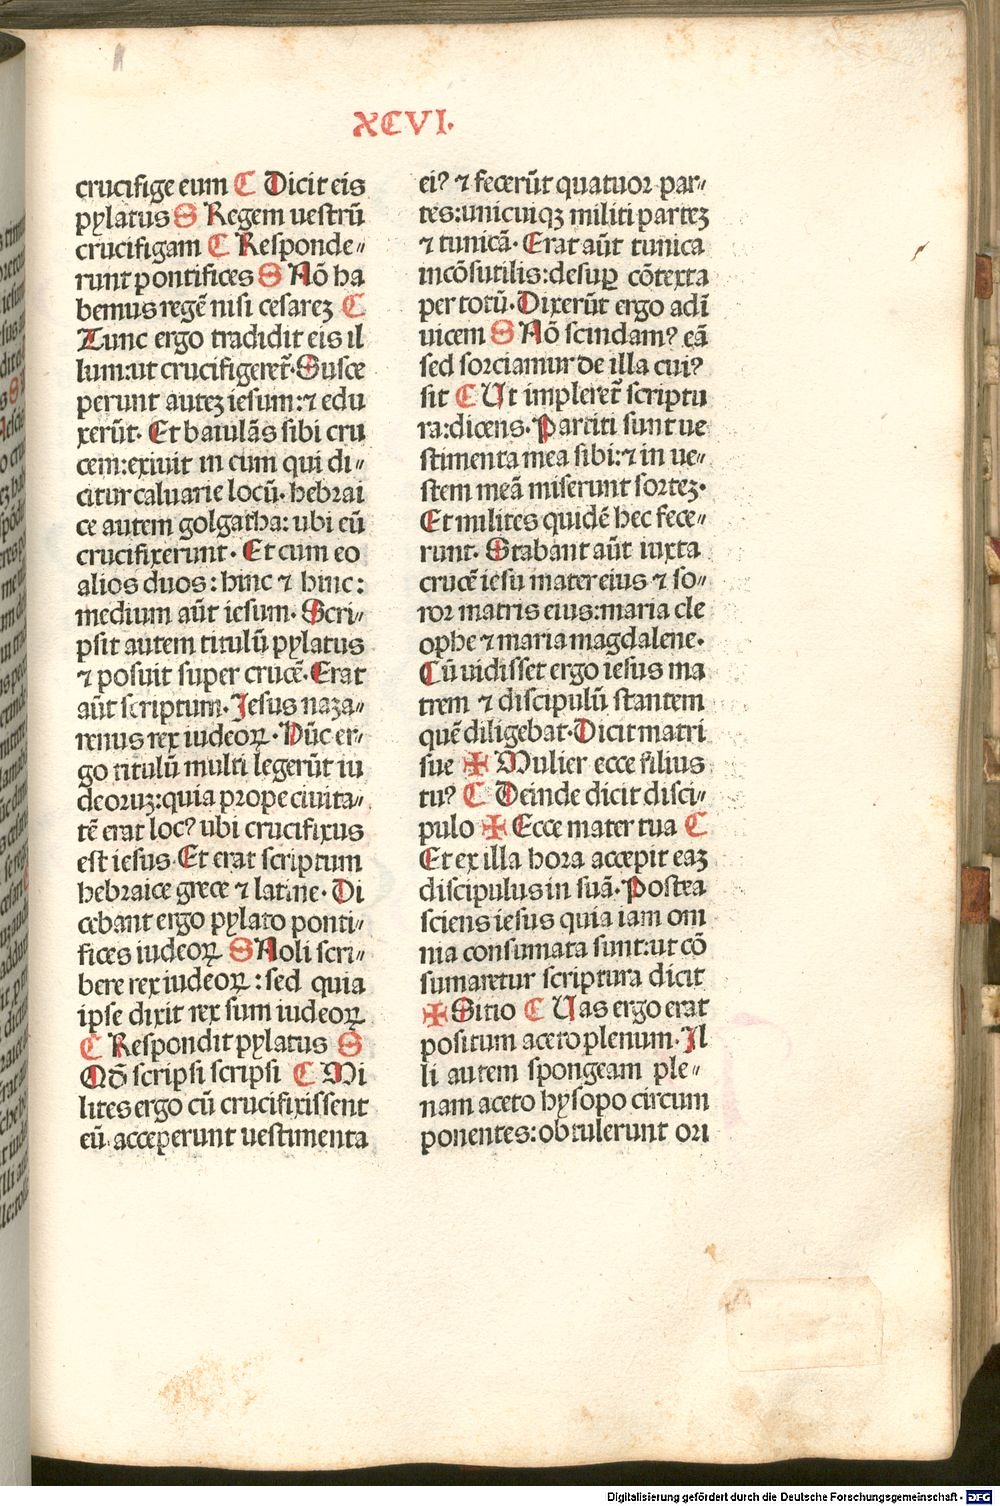 XCVI.
crucifige eum C Dicit eis
pylatus S Regem uestrū
crucifigam C Responde〃
runt pontifices S Nō ha
bemus regē nisi cesareꝫ C
Tunc ergo tradidit eis il
lum:ut crucifigeret̄. Susce
perunt auteꝫ iesum:⁊ edu
xerūt. Et baiulās sibi cru
cem:exiuit in eum qui di〃
citur caluarie locū. hebrai
ce autem golgatha: ubi eū
crucifixerunt. Et cum eo
alios duos: hinc ⁊ hinc:
medium aūt iesum. Scri〃
psit autem titulū pylatus
⁊ posuit super crucē. Erat
aūt scriptum. Jesus naza〃
renus rex iudeoꝝ. Hūc er〃
go titulū multi legerūt iu
deoruꝫ:quia prope ciuita〃
tē erat locꝰ ubi crucifixus
est iesus. Et erat scriptum
hebraice grece ⁊ latine. Di
cebant ergo pylato ponti〃
fices iudeoꝝ S Noli scri〃
bere rex iudeoꝝ: sed quia
ipse dixit rex sum iudeoꝝ
C Respondit pylatus S
Qđ scripsi scripsi C Mi
lites ergo cū crucifixissent
eū. acceperunt uestimenta
eiꝰ ⁊ fecerūt quatuor par〃
tes:unicuiqꝫ militi parteꝫ
⁊ tunicā. Erat aūt tunica
incōsutilis:desuꝑ cōtexta
per totū. Dixerūt ergo adī
uicem S Nō scindamꝰ eā
sed sorciamur de illa cuiꝰ
sit C Ut impleret̄ scriptu
ra:dicens. Partiti sunt ue
stimenta mea sibi:⁊ in ue〃
stem meā miserunt sorteꝫ.
Et milites quidē hec fece〃
runt. Stabant aūt iuxta
crucē iesu mater eius ⁊ so〃
ror matris eius:maria cle
ophe ⁊ maria magdalene.
Cū uidisset ergo iesus ma
trem ⁊ discipulū stantem
quē diligebat. Dicit matri
sue ✠ Mulier ecce filius
tuꝰ C Deinde dicit disci〃
pulo ✠ Ecce mater tua C
Et ex illa hora accepit eaꝫ
discipulus in suā. Postea
sciens iesus quia iam om
nia consumata sunt:ut cō
sumaretur scriptura dicit
✠ Sitio C Uas ergo erat
positum aceto plenum. Il
li autem spongeam ple〃
nam aceto hysopo circum
ponentes:obtulerunt ori
Digitalisierung gefördert durch die Deutsche Forschungsgemeinschaft - DFG